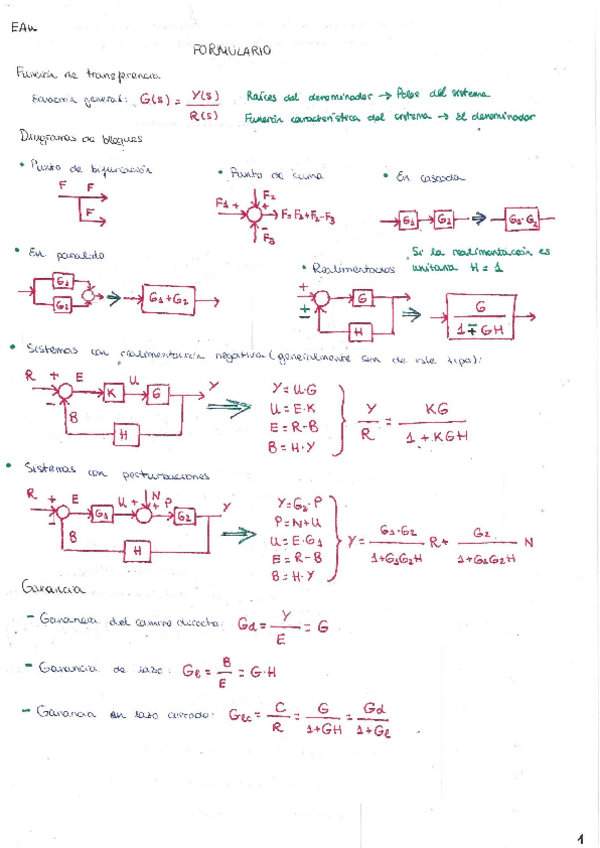 EAu
FORMULARIO
Función de transferencia
Ecuación general: G(s) = Y(s) / R(s)
Raíces del denominador → Polos del sistema
Función característica del sistema → El denominador
Diagramas de bloques
• Punto de bifurcación
F F
F
• Punto de suma
F1 + F2 + F=F1+F2-F3
- F3
• En cascada
G1 G2 ⇒ G1·G2
• En paralelo
G1 G2 ⇒ G1+G2
• Realimentados
Si la realimentación es
unitaria H = 1
+ ± G H ⇒ G / 1∓GH
• Sistemas con realimentación negativa (generalmente son de este tipo):
R + - E K U G Y
B H
Y=U·G
U=E·K
E=R-B
B=H·Y
Y / R = KG / 1+KGH
• Sistemas con perturbaciones
R + - E G1 U + N + P G2 Y
B H
Y=G2·P
P=N+U
U=E·G1
E=R-B
B=H·Y
Y= G1·G2 / 1+G1G2H R+ G2 / 1+G1G2H N
Ganancia
- Ganancia del camino directo: Gd = Y / E = G
- Ganancia de lazo: Ge = B / E = G·H
- Ganancia en lazo cerrado: Gec = C / R = G / 1+GH = Gd / 1+Ge
1